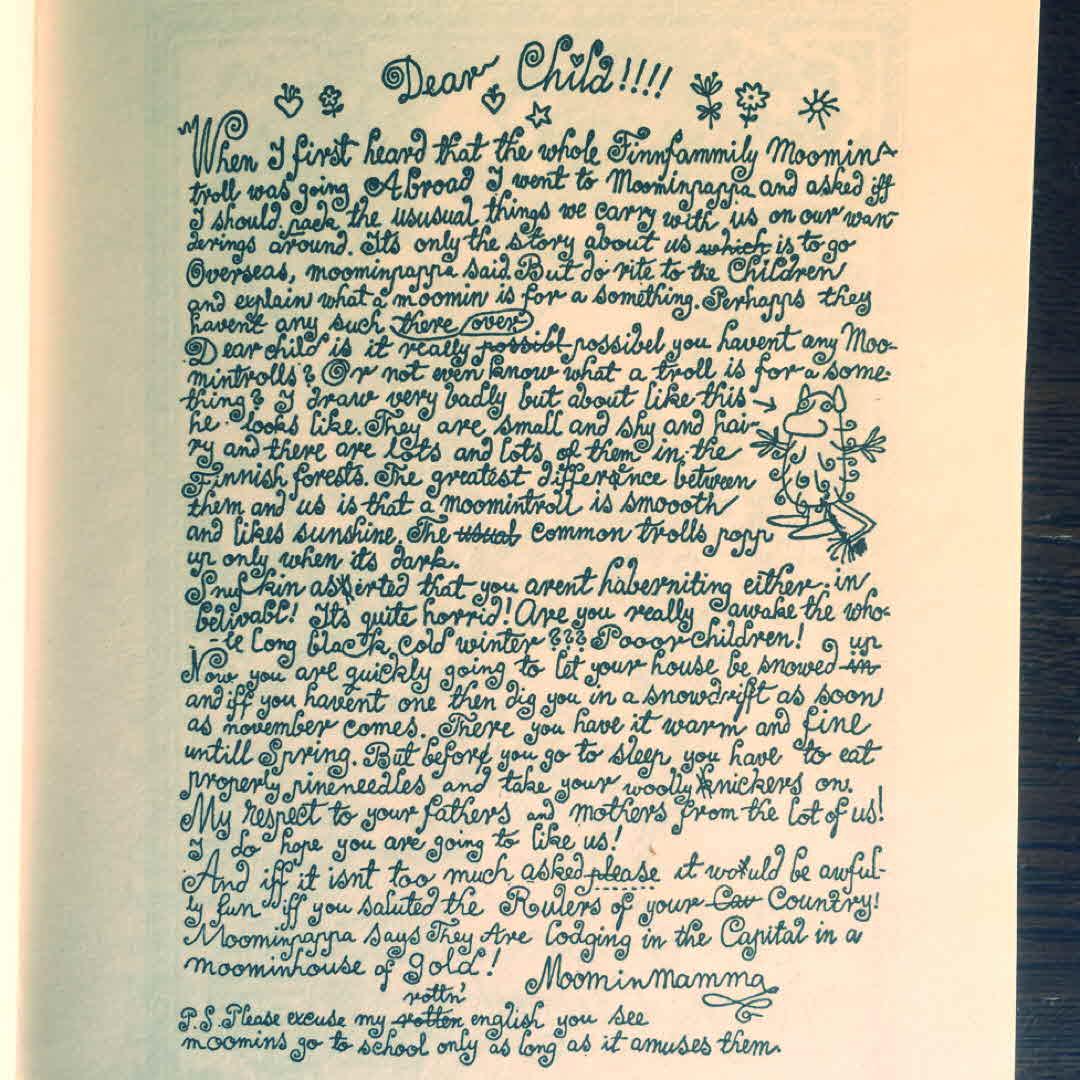 Dear Child!!!!
When I first heard that the whole Finnfammily Moomin-
troll was going Abroad I went to Moominpappa and asked iff
I should pack the ususual things we carry with us on our wan-
derings around. Its only the story about us which is to go
Overseas, moominpappa said. But do rite to the Children
and explain what a moomin is for a something. Perhapps they
havent any such there over.
Dear child is it really possibl possibel you havent any Moo-
mintrolls? Or not even know what a troll is for a some-
thing? I draw very badly but about like this →
he looks like. They are small and shy and hai-
ry and there are lots and lots of them in the
Finnish forests. The greatest differance between
them and us is that a moomintroll is smoooth
and likes sunshine. The usual common trolls popp
up only when its dark.
Snufkin asserted that you arent haberniting either. in
belivabl! Its quite horrid! Are you really awake the who-
-le long black, cold winter??? Pooor children! up
Now you are quickly going to let your house be snowed in
and iff you havent one then dig you in a snowdrifft as soon
as november comes. There you have it warm and fine
untill Spring. But before you go to sleep you have to eat
properly pineneedles and take your woolly knickers on.
My respect to your fathers and mothers from the lot of us!
I do hope you are going to like us!
And iff it isnt too much asked please it would be awful-
ly fun iff you saluted the Rulers of your Cou Country!
Moominpappa says They Are lodging in the Capital in a
moominhouse of gold!
Moominmamma
rottn'
P.S. Please excuse my rotten english you see
moomins go to school only as long as it amuses them.